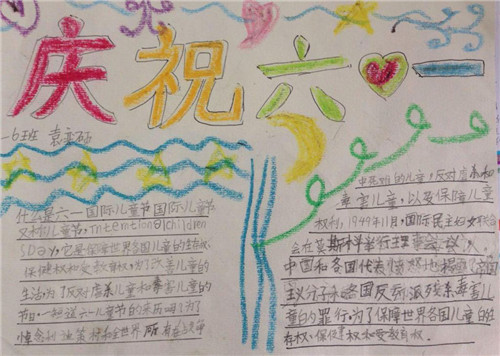 庆祝六一
一6班 袁
什么是六一国际儿童节国际儿童节
又称儿童节,Internation@lchildren
sDay,它是保障世界各国儿童的生存权、
保健权和受教育权,为了改善儿童的
生活,为了反对虐杀儿童和毒害儿童的
节日,
六一儿童节的来历吗?为了
悼念 和全世界所有在战争
中死难的儿童,反对虐杀和
毒害儿童,以及保障儿童
权利,1949年11月,国际民主妇女联合
会在莫斯科举行理事
中国和各国代表愤怒地揭
主义分子 各国反动派残杀毒害儿
童的罪行。为了保障世界各国儿童的生
存权、保健权和受教育权